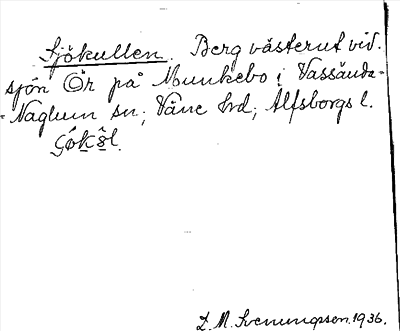 Sjökullen. Berg västerut vid.
sjön Ör på Munkebo i Vassända-
-Naglum sn; Väne hrd; Älfsborgs l.
L. M. Svenungsson. 1936.